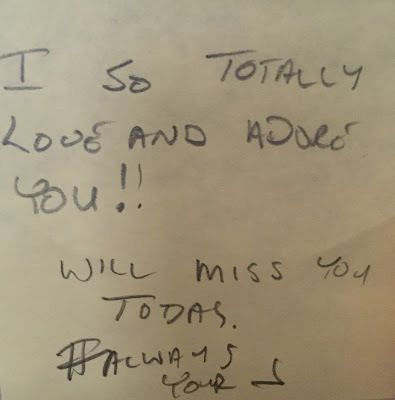 I SO TOTALLY
LOVE AND ADORE
YOU!!
WILL MISS YOU
TODAY.
#ALWAYS
YOUR J